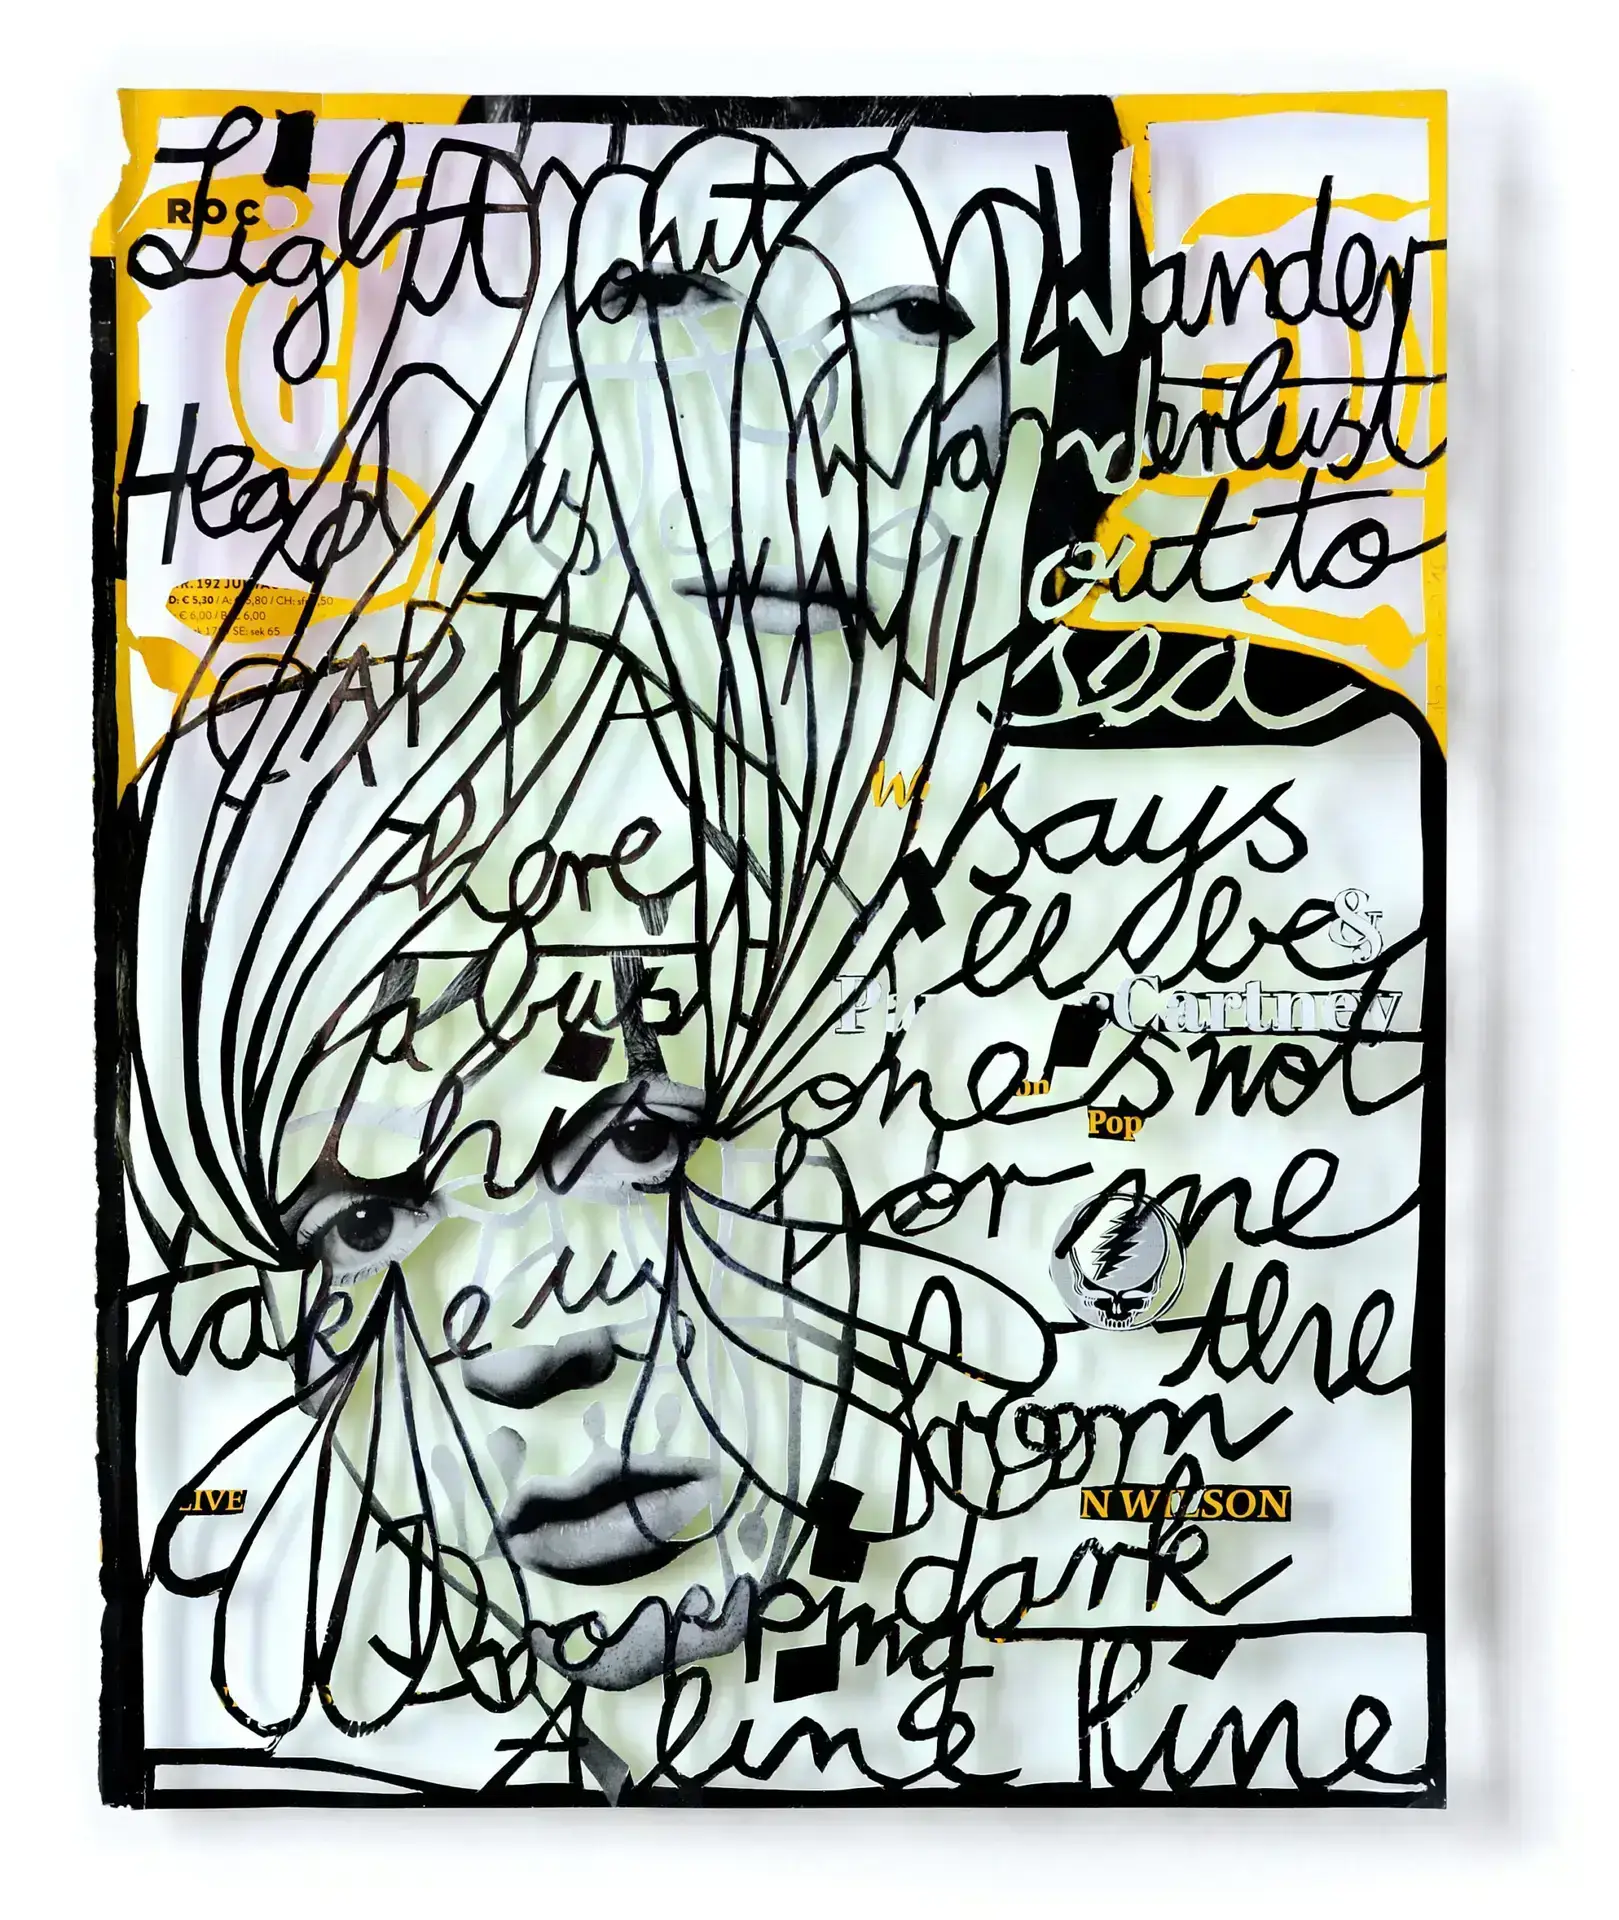 Light out Wander
ROC
wanderlust
Head is
out to
NR. 192
D: € 5,30 / A: 5,80 / CH: sfr ,50
€ 6,00 / B € 6,00
SE: sek 65
sea
says
I'll be
&
Paul McCartney
a bus
one's not
Pop
this
for me
take us
the
from
LIVE
N WILSON
dark
Dropping
A line line